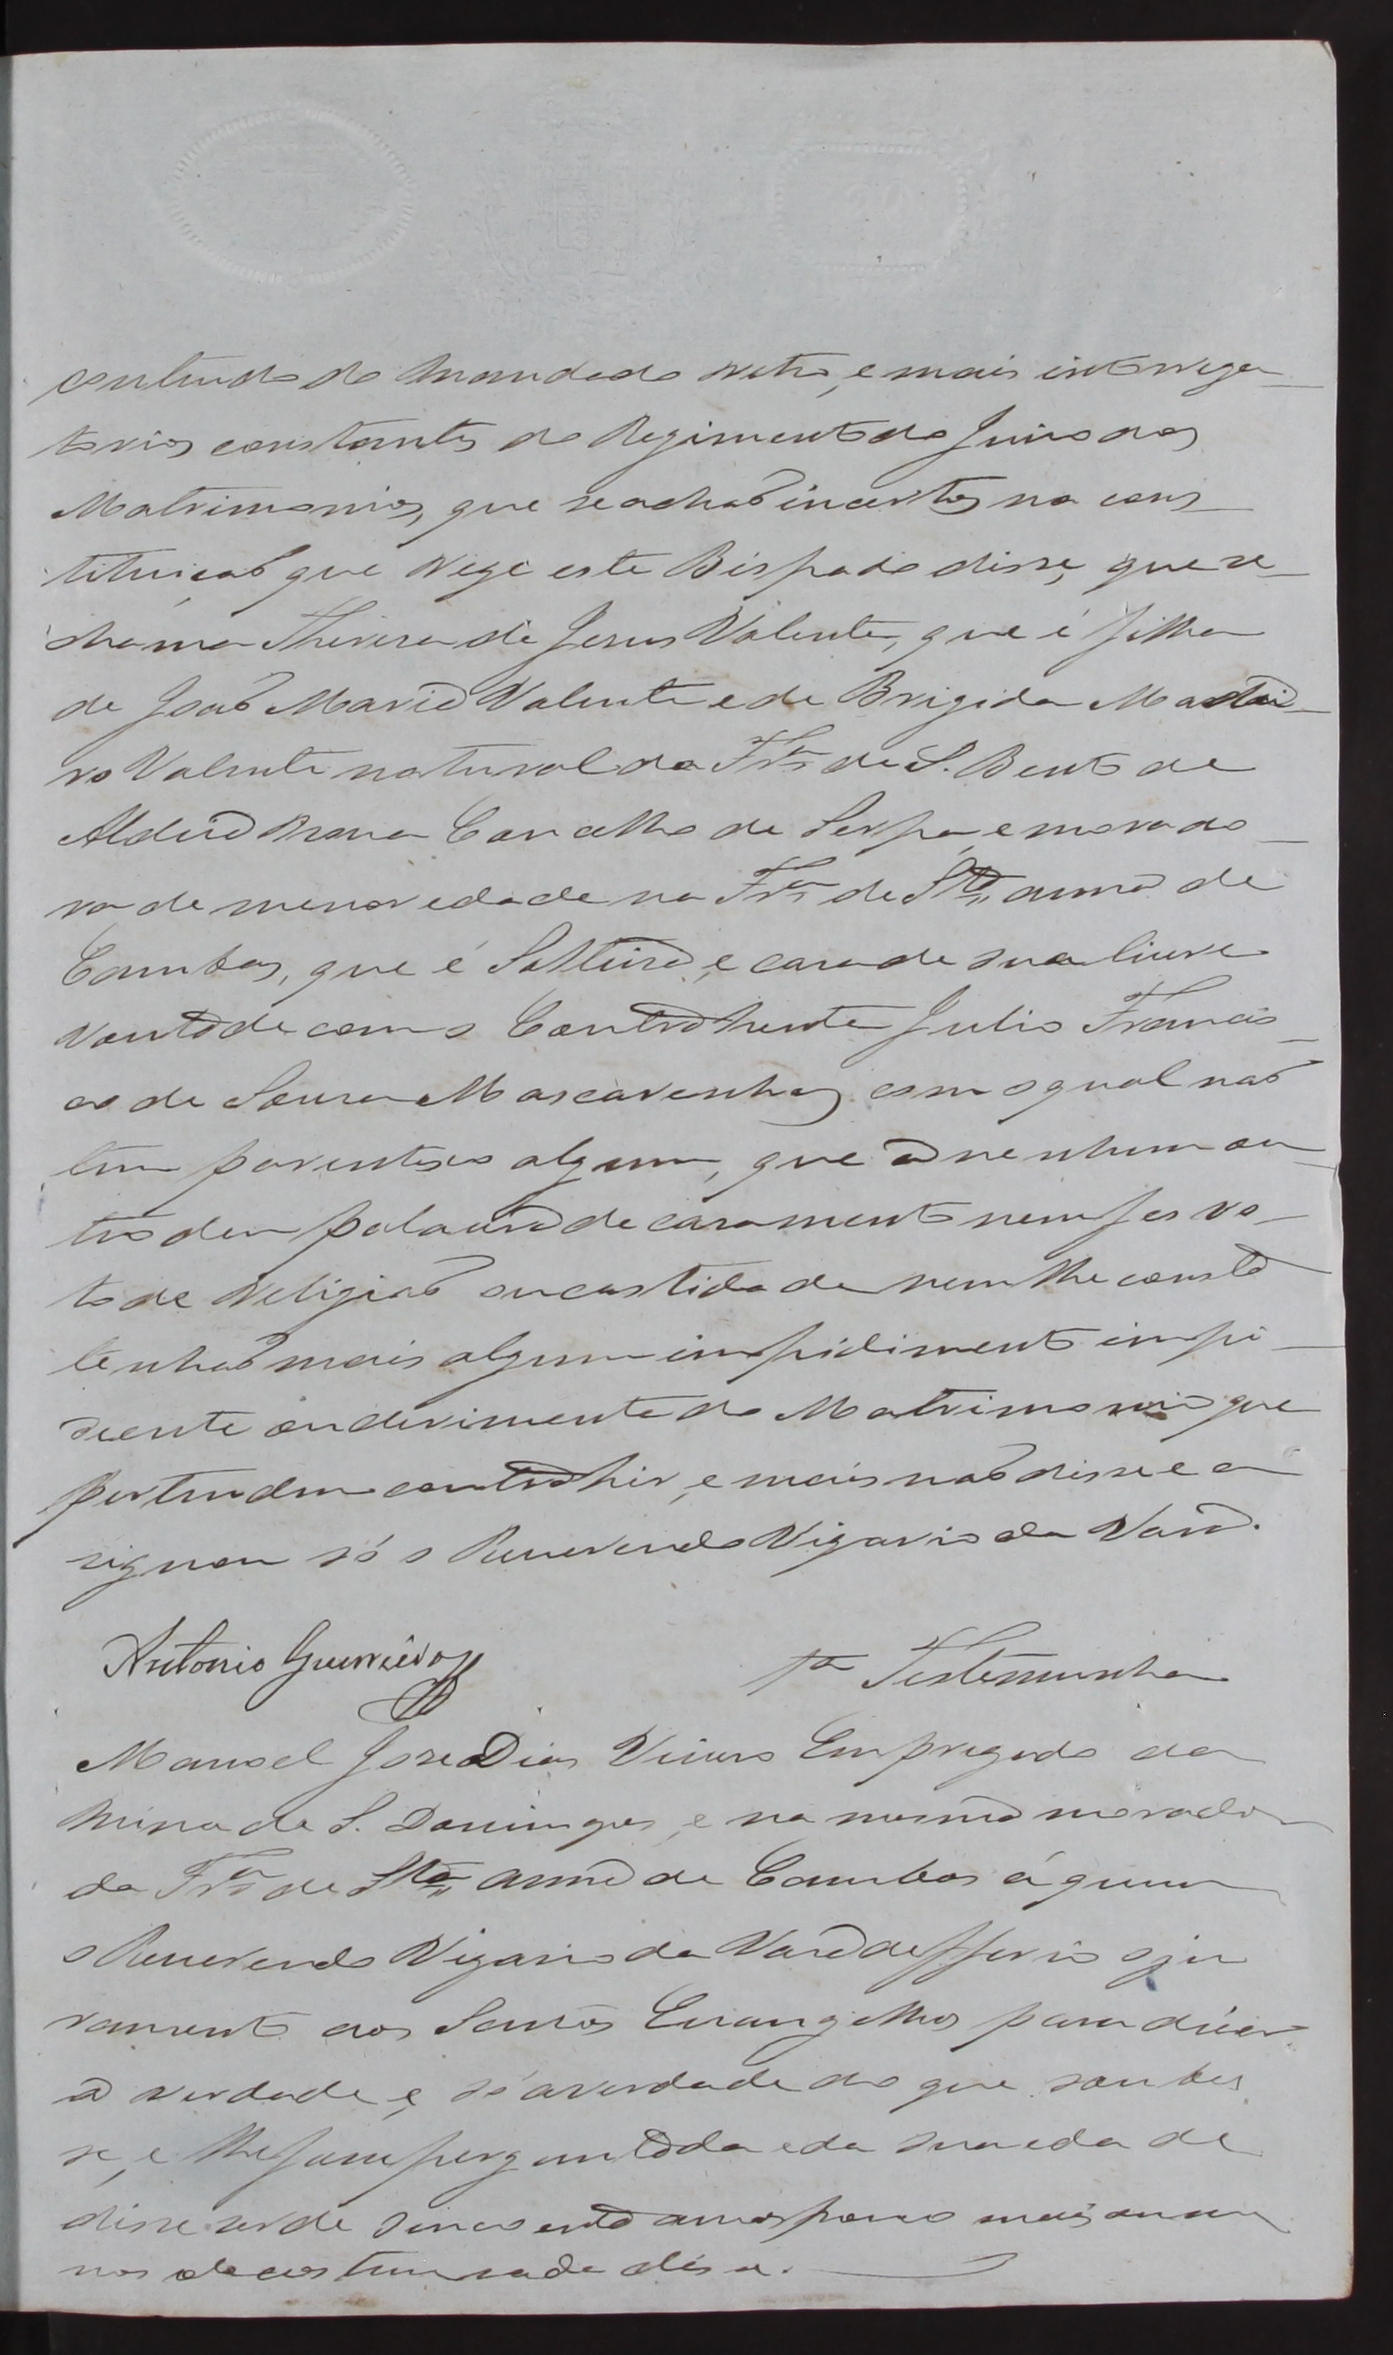 contendo do Mandado retro, e mais interroga-
torios constantes do Regimento do Juiso dos
Matrimonios, que se achaõ incertos na cons-
tituiçaõ que Rege este Bispado disse, que se
chama Thereza de Jesus Valente, que é filha
de Joaõ Maria Valente e de Brigida Madei-
ra Valente natural da Frª de S. Bento de
Aldeia Nova Concelho de Serpa, e morado-
ra de menor edade na Frª de Stª Anna de
Cambas, que é Solteira, e casa de sua livre
Vontade com o Contrahente Julio Francis-
co de Souza Mascarenhas com o qual naõ
tem parentesco algum, que a nenhum ou-
tro deu palavra de casamento nem fes vo-
to de Religiaõ ou castidade nem lhe consta
tenhaõ mais algum impidimento impi-
diente ou dirimente do Matrimonio que
pertendem contrahir, e mais naõ disse e a
signou só o Reverendo Vigario da Vara.
Antonio Guerreiro
1ª Testemunha
Manoel Jose Dias Viuvo Empregado da
Mina de S. Domingos, e na mesma morador
da Frª de Stª Anna de Cambas á quem
o Reverendo Vigario da Vara defferio o ju
ramento aos Santos Evangelhos para diser
a verdade e, só a verdade do que soubes
se, e lhe fosse perguntado e da sua edade
disse ser de sincoenta annos pouco mais ou me
nos do costume nada disse.